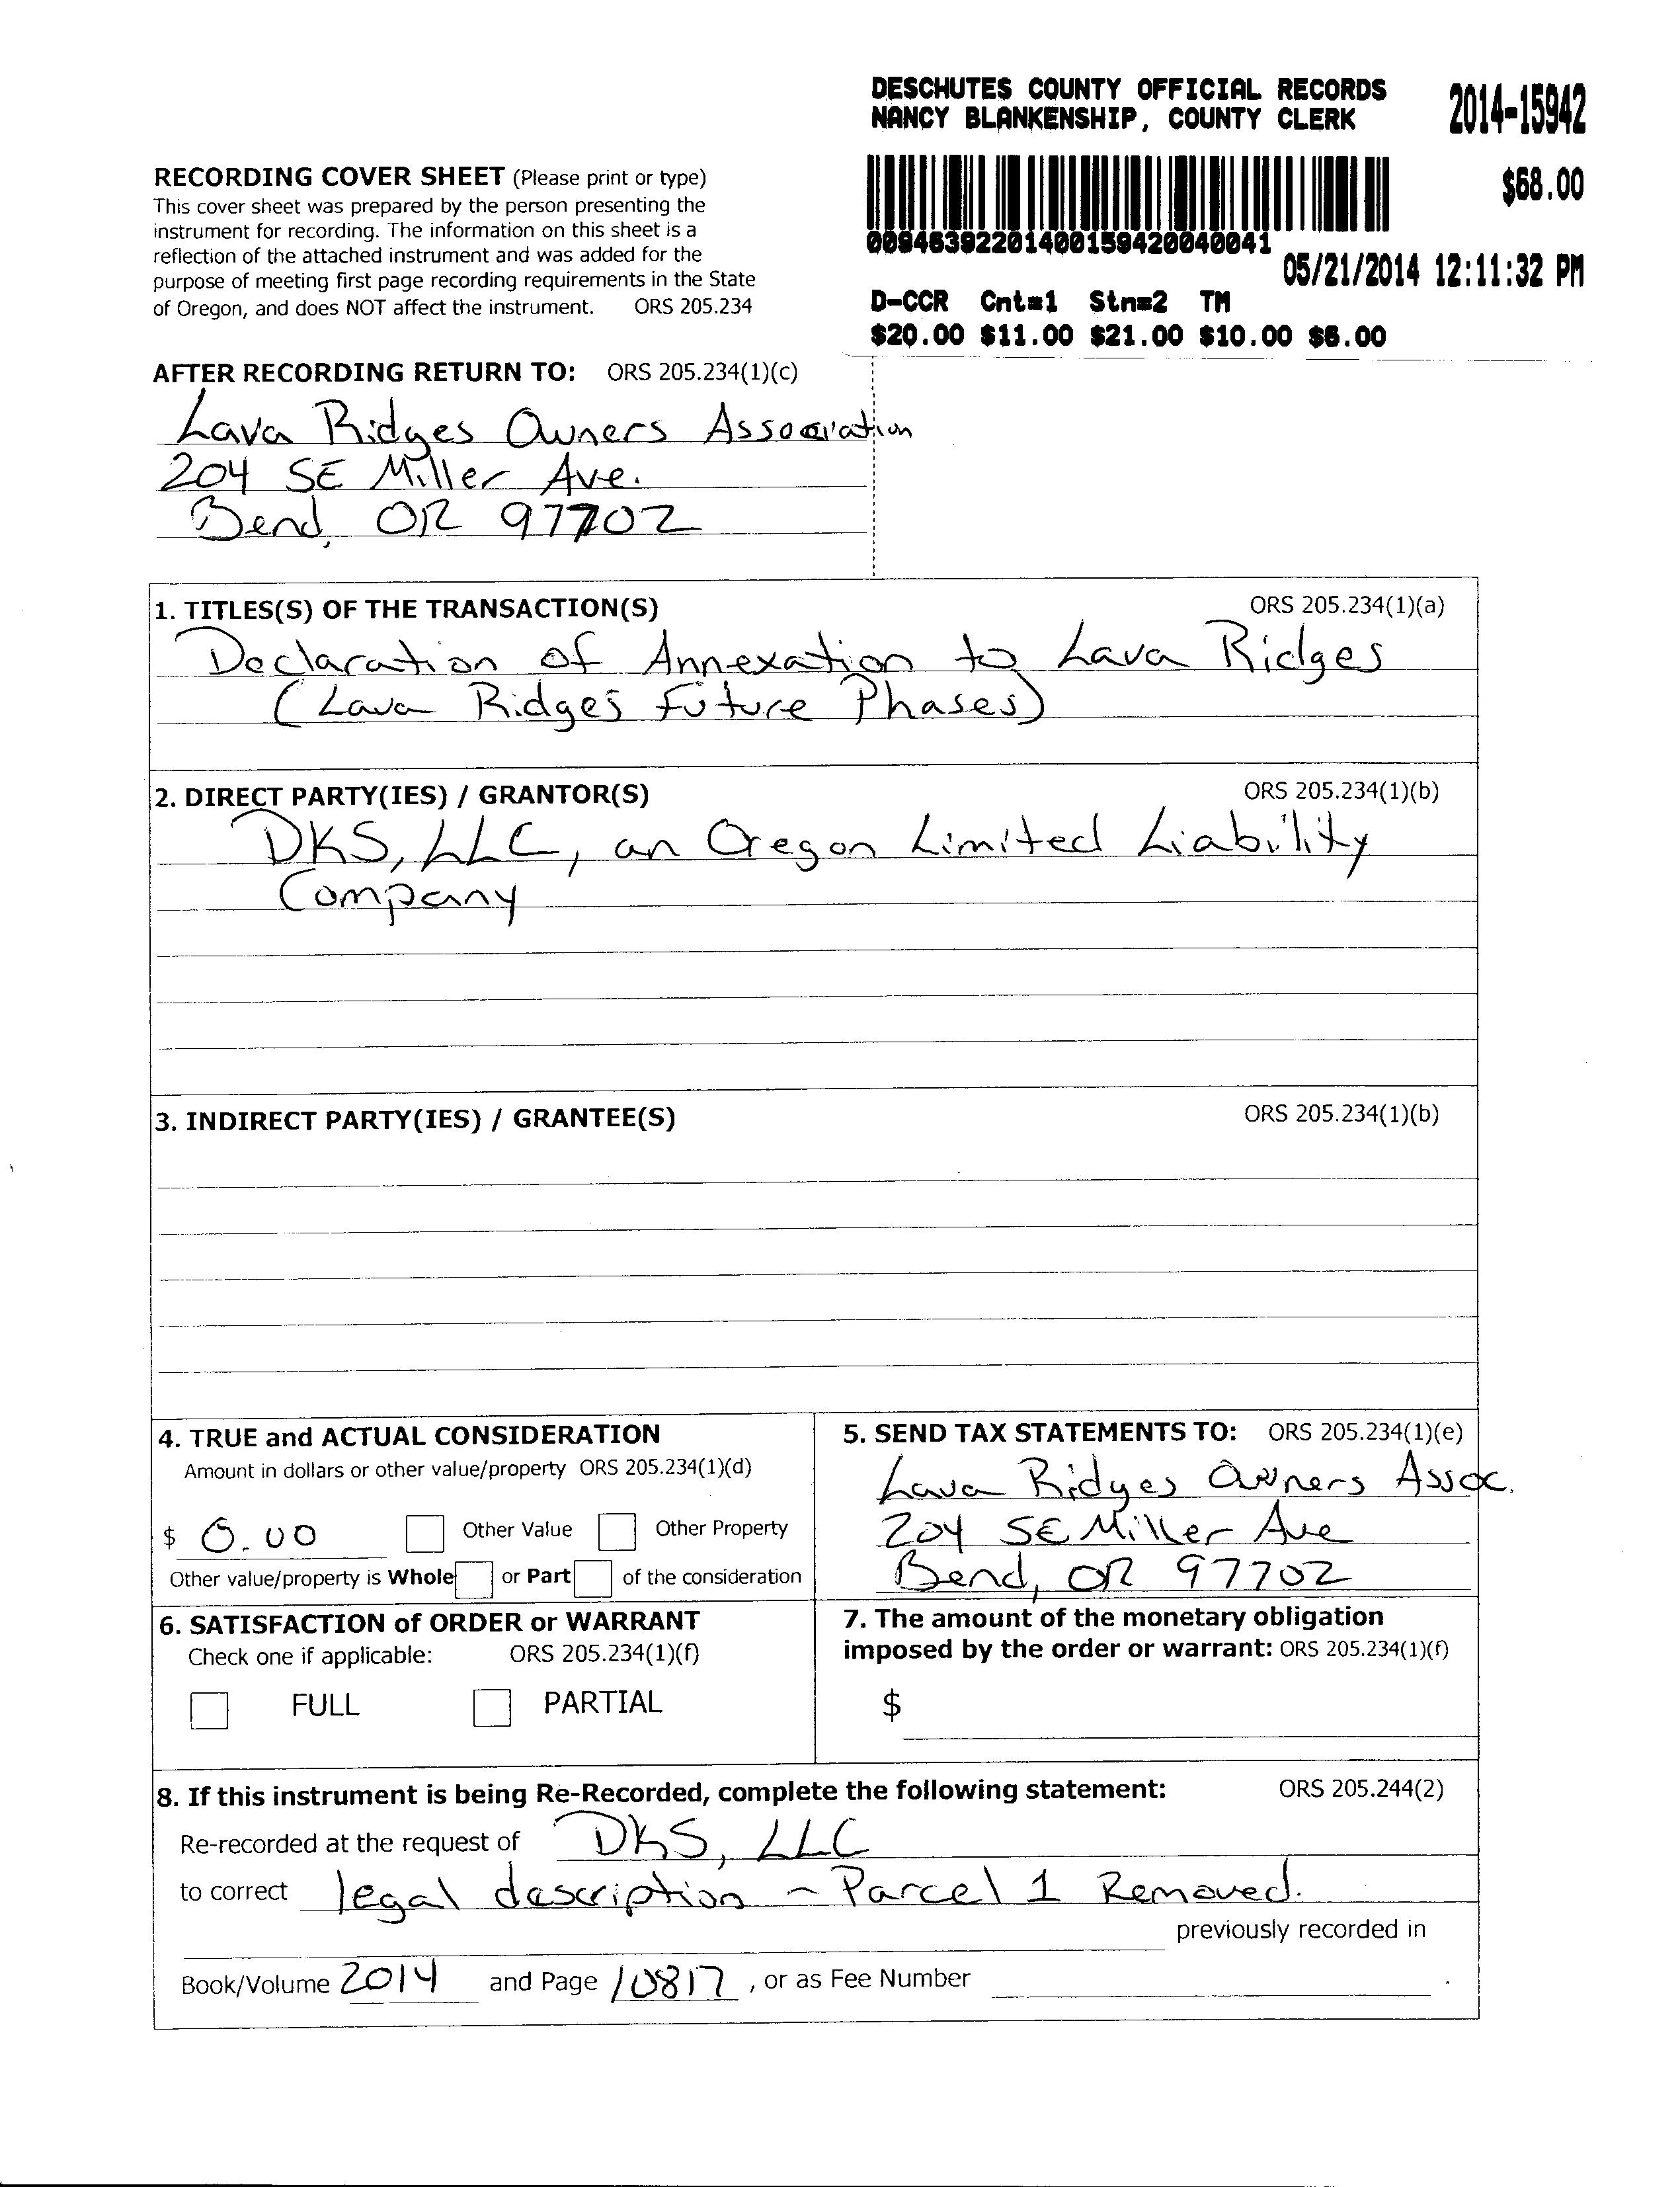 DESCHUTES COUNTY OFFICIAL RECORDS
NANCY BLANKENSHIP, COUNTY CLERK
2014-15942
$68.00
00946392201400159420040041
05/21/2014 12:11:32 PM
D-CCR Cnt=1 Stn=2 TM
$20.00 $11.00 $21.00 $10.00 $6.00
RECORDING COVER SHEET (Please print or type)
This cover sheet was prepared by the person presenting the
instrument for recording. The information on this sheet is a
reflection of the attached instrument and was added for the
purpose of meeting first page recording requirements in the State
of Oregon, and does NOT affect the instrument. ORS 205.234
AFTER RECORDING RETURN TO: ORS 205.234(1)(c)
Lava Ridges Owners Association
204 SE Miller Ave.
Bend, OR 97702
1. TITLES(S) OF THE TRANSACTION(S) ORS 205.234(1)(a)
Declaration of Annexation to Lava Ridges
(Lava Ridges Future Phases)
2. DIRECT PARTY(IES) / GRANTOR(S) ORS 205.234(1)(b)
DKS, LLC, an Oregon Limited Liability
Company
3. INDIRECT PARTY(IES) / GRANTEE(S) ORS 205.234(1)(b)
4. TRUE and ACTUAL CONSIDERATION
Amount in dollars or other value/property ORS 205.234(1)(d)
$ 0.00 Other Value Other Property
Other value/property is Whole or Part of the consideration
5. SEND TAX STATEMENTS TO: ORS 205.234(1)(e)
Lava Ridges Owners Assoc.
204 SE Miller Ave
Bend, OR 97702
6. SATISFACTION of ORDER or WARRANT
Check one if applicable: ORS 205.234(1)(f)
FULL PARTIAL
7. The amount of the monetary obligation
imposed by the order or warrant: ORS 205.234(1)(f)
$
8. If this instrument is being Re-Recorded, complete the following statement: ORS 205.244(2)
Re-recorded at the request of DKS, LLC
to correct legal description - Parcel 1 Removed.
previously recorded in
Book/Volume 2014 and Page 10817, or as Fee Number .